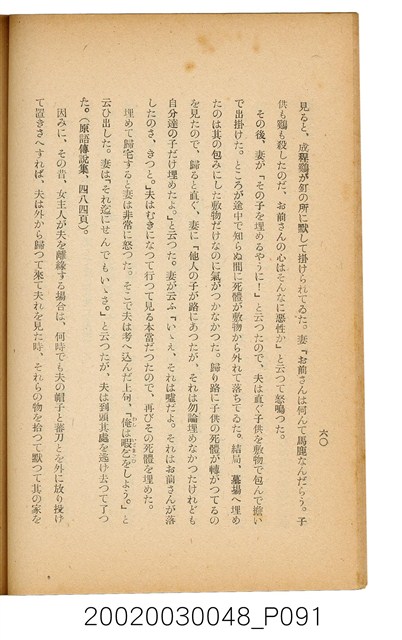 六〇
見ると、成程鷄が釘の所に默して掛けられてゐた。妻『お前さんは何んて馬鹿なんだらう。子
供も鷄も殺したのだ、お前さんの心はそんなに惡性か』と云つて怒鳴つた。
その後、妻が「その子を埋めるやうに！」と云つたので、夫は直ぐ子供を敷物で包んで擔い
で出掛けた。ところが途中で知らぬ間に死體が敷物から外れて落ちてゐた。結局、墓場へ埋め
たのは其の包みにした敷物だけなのに氣がつかなかつた。歸り路に子供の死體が轉がつてるの
を見たので、歸ると直ぐ、妻に『他人の子が路にあつたが、それは勿論埋めなかつたけれども
自分達の子だけ埋めたよ。』と云つた。妻が云ふ「いゝえ、それは嘘だよ。それはお前さんが落
したのさ、きつと。』夫はむきになつて行つて見る本當だつたので、再びその死體を埋めた。
埋めて歸宅すると妻は非常に怒つた。そこで夫は考へ込んだ上句、「俺は暇乞をしよう。」と
云ひ出した。妻は「それ迄にせんでもいゝさ。」と云つたが、夫は到頭其處を逃け去つて了つ
た。（原語傳說集、四八四頁）。
因みに、その昔、女主人が夫を離緣する場合は、何時でも夫の帽子と蕃刀とを外に放り投け
て置きさへすれば、夫は外から歸つて來て夫れを見た時、それらの物を拾つて默つて其の家を
20020030048_P091